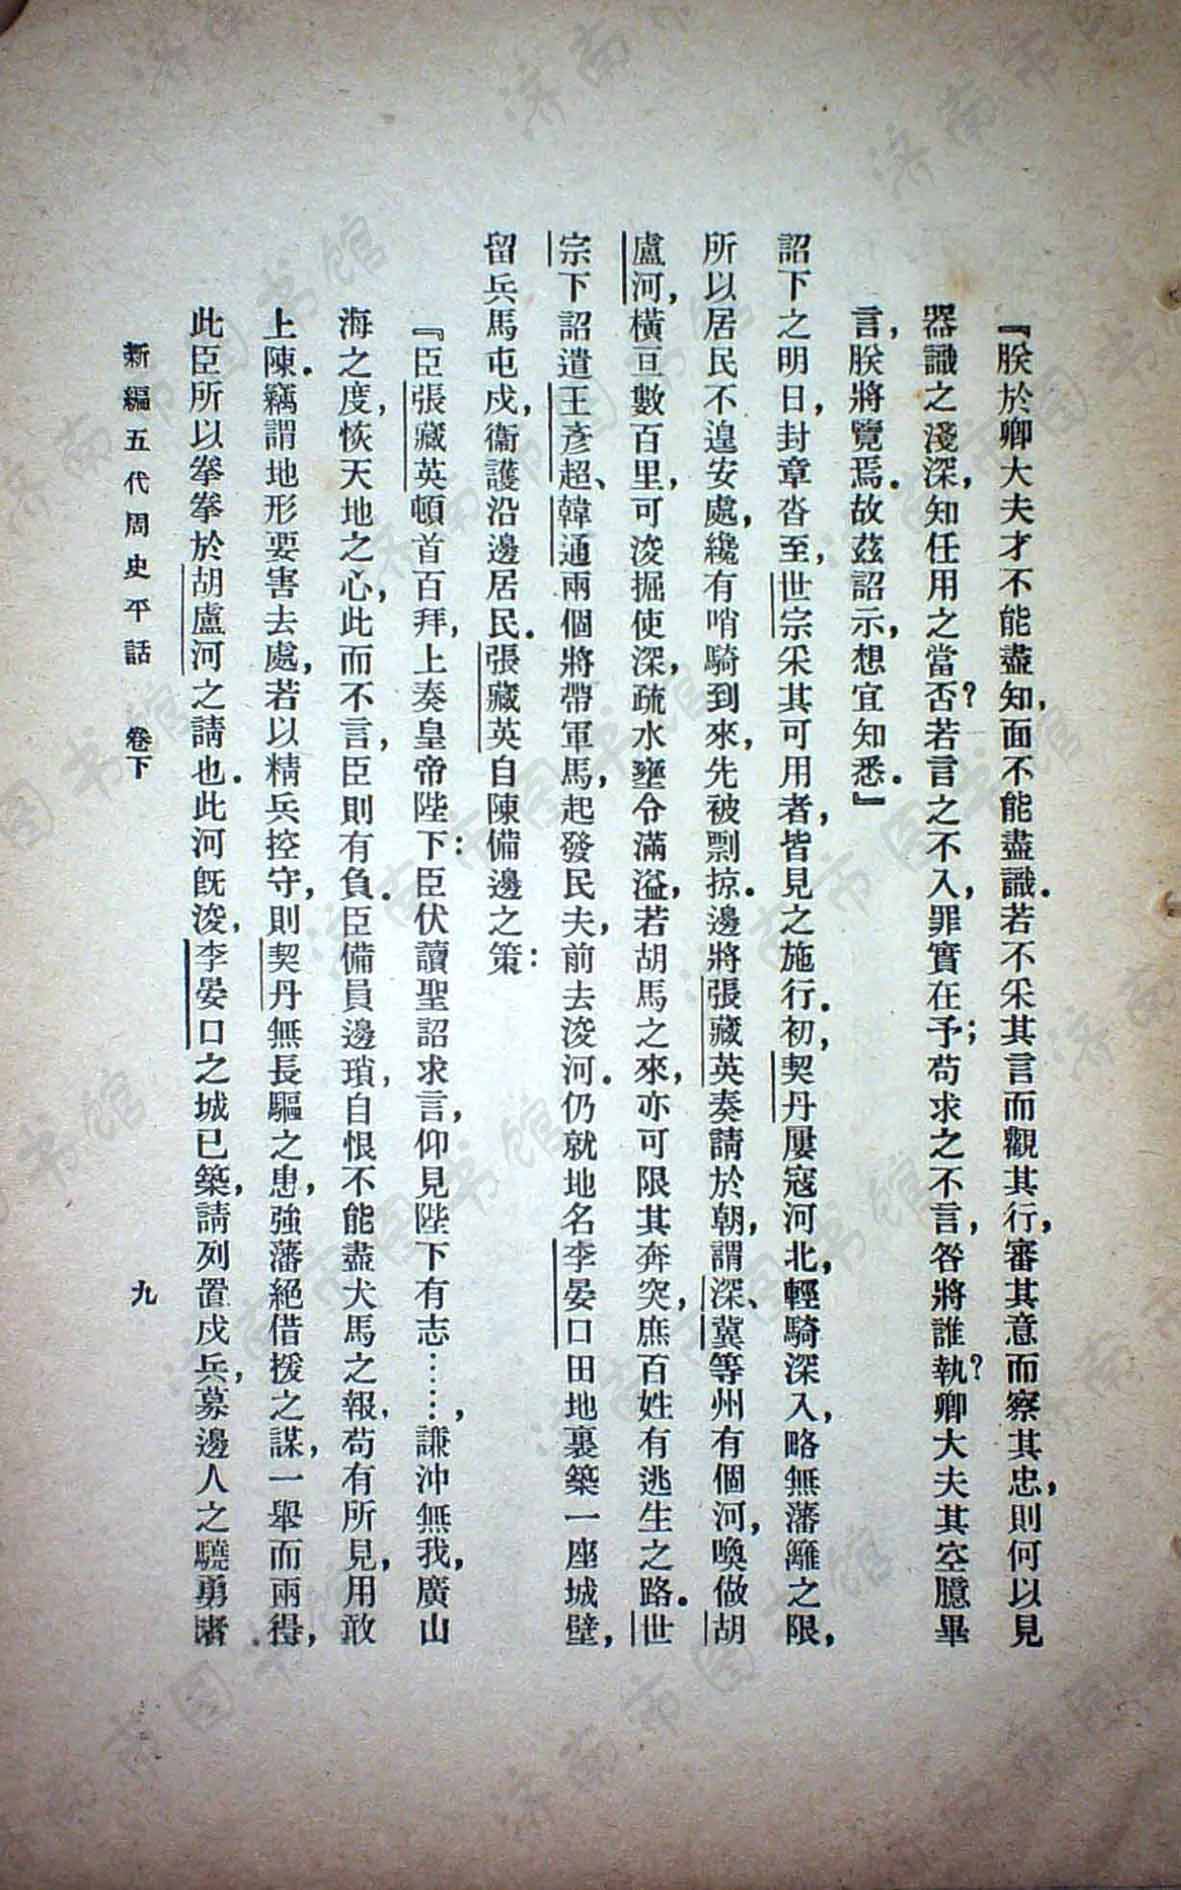 『朕於卿大夫才不能盡知，面不能盡識。若不采其言而觀其行，審其意而察其忠，則何以見
器識之淺深，知任用之當否？若言之不入，罪實在予；苟求之不言，咎將誰執？卿大夫其空臆畢
言，朕將覽焉。故茲詔示，想宜知悉。』
詔下之明日，封章沓至，世宗采其可用者，皆見之施行。初，契丹屢寇河北，輕騎深入，略無藩籬之限，
所以居民不遑安處，纔有哨騎到來，先被剽掠。邊將張藏英奏請於朝，謂深、冀等州有個河，喚做胡
盧河，橫亘數百里，可浚掘使深，疏水壅令滿溢，若胡馬之來，亦可限其奔突，庶百姓有逃生之路。世
宗下詔遣王彥超、韓通兩個將帶軍馬，起發民夫，前去浚河。仍就地名李晏口田地裏築一座城壁，
留兵馬屯戍，衞護沿邊居民。張藏英自陳備邊之策：
『臣張藏英頓首百拜，上奏皇帝陛下：臣伏讀聖詔求言，仰見陛下有志……，謙沖無我，廣山
海之度，恢天地之心，此而不言，臣則有負。臣備員邊瑣，自恨不能盡犬馬之報，苟有所見，用敢
上陳。竊謂地形要害去處，若以精兵控守，則契丹無長驅之患，強藩絕借援之謀，一舉而兩得，
此臣所以拳拳於胡盧河之請也。此河旣浚，李晏口之城已築，請列置戍兵，募邊人之驍勇者
新編五代周史平話 卷下 九
济南市图书馆